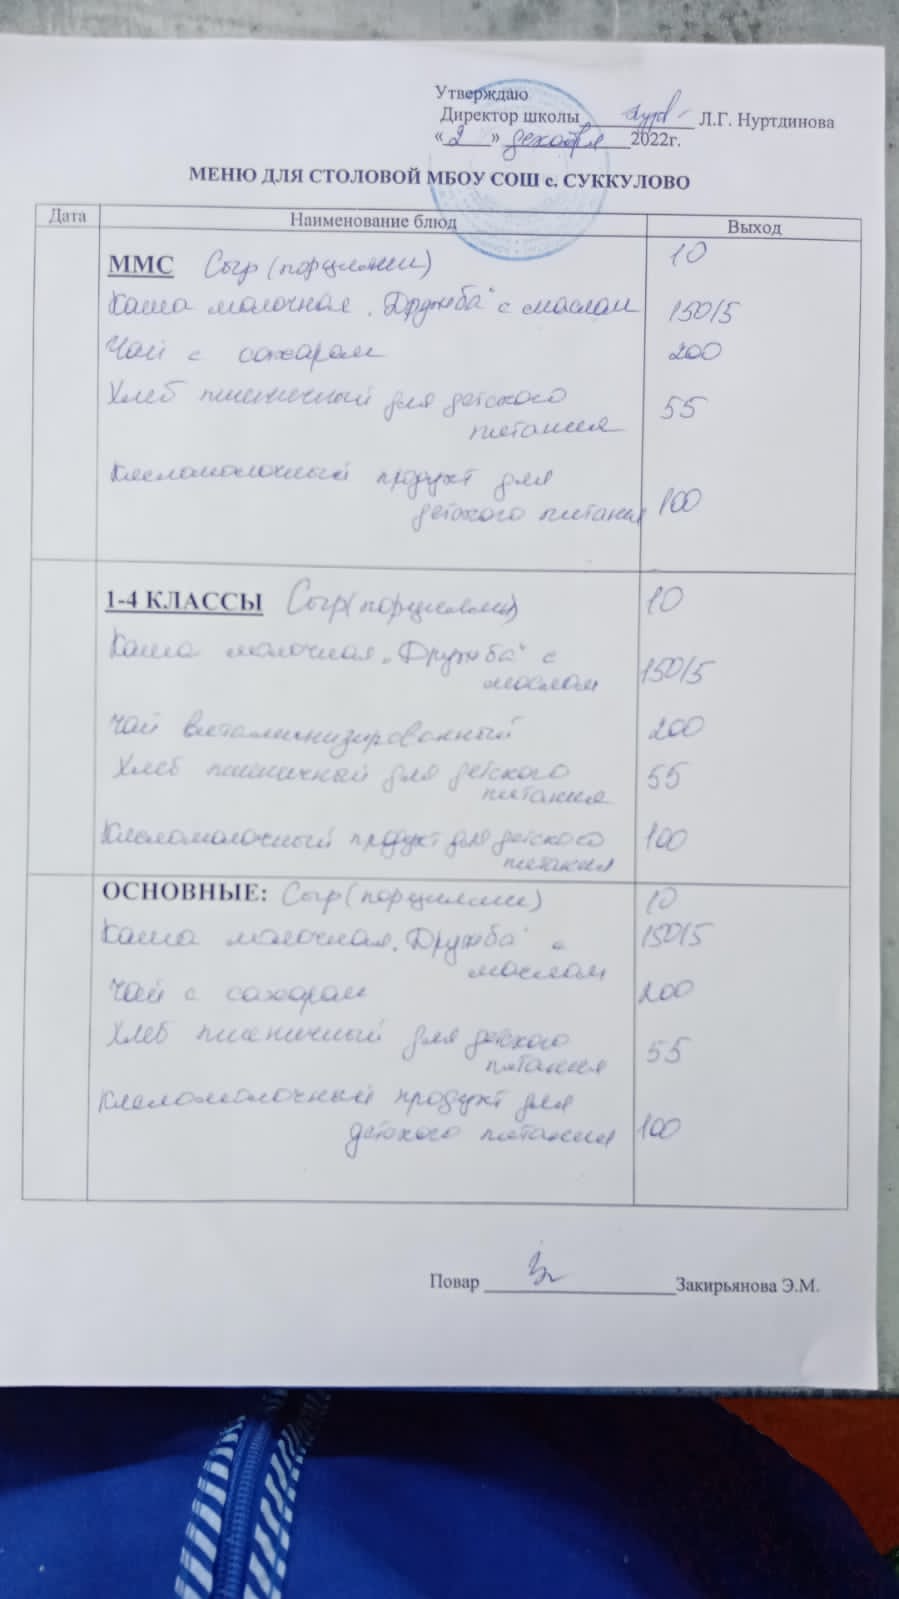 Утверждаю
Директор школы Л.Г. Нуртдинова
«2» декабря 2022г.
МЕНЮ ДЛЯ СТОЛОВОЙ МБОУ СОШ с. СУККУЛОВО
Дата Наименование блюд Выход
ММС Сыр (порциями) 10
Каша молочная "Дружба" с маслом 150/5
Чай с сахаром 200
Хлеб пшеничный для детского
питания 55
Кисломолочный продукт для
детского питания 100
1-4 КЛАССЫ Сыр (порциями) 10
Каша молочная "Дружба" с
маслом 150/5
Чай витаминизированный 200
Хлеб пшеничный для детского 55
питания
Кисломолочный продукт для детского 100
питания
ОСНОВНЫЕ: Сыр (порциями) 10
Каша молочная "Дружба" с 150/5
маслом
Чай с сахаром 200
Хлеб пшеничный для детского
питания 55
Кисломолочный продукт для
детского питания 100
Повар Закирьянова Э.М.